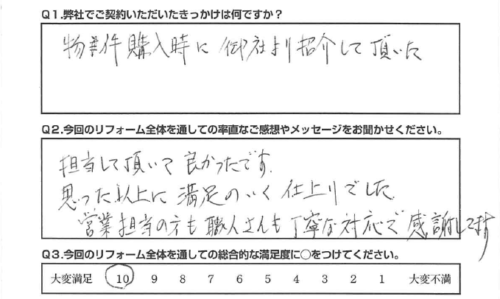 Q1.弊社でご契約いただいたきっかけは何ですか?
物件購入時に御社より紹介して頂いた
Q2.今回のリフォーム全体を通しての率直なご感想やメッセージをお聞かせください。
担当して頂いて良かったです.
思った以上に満足のいく仕上りでした
営業担当の方も職人さんも丁寧な対応で感謝してます
Q3.今回のリフォーム全体を通しての総合的な満足度に○をつけてください。
大変満足 10 9 8 7 6 5 4 3 2 1 大変不満